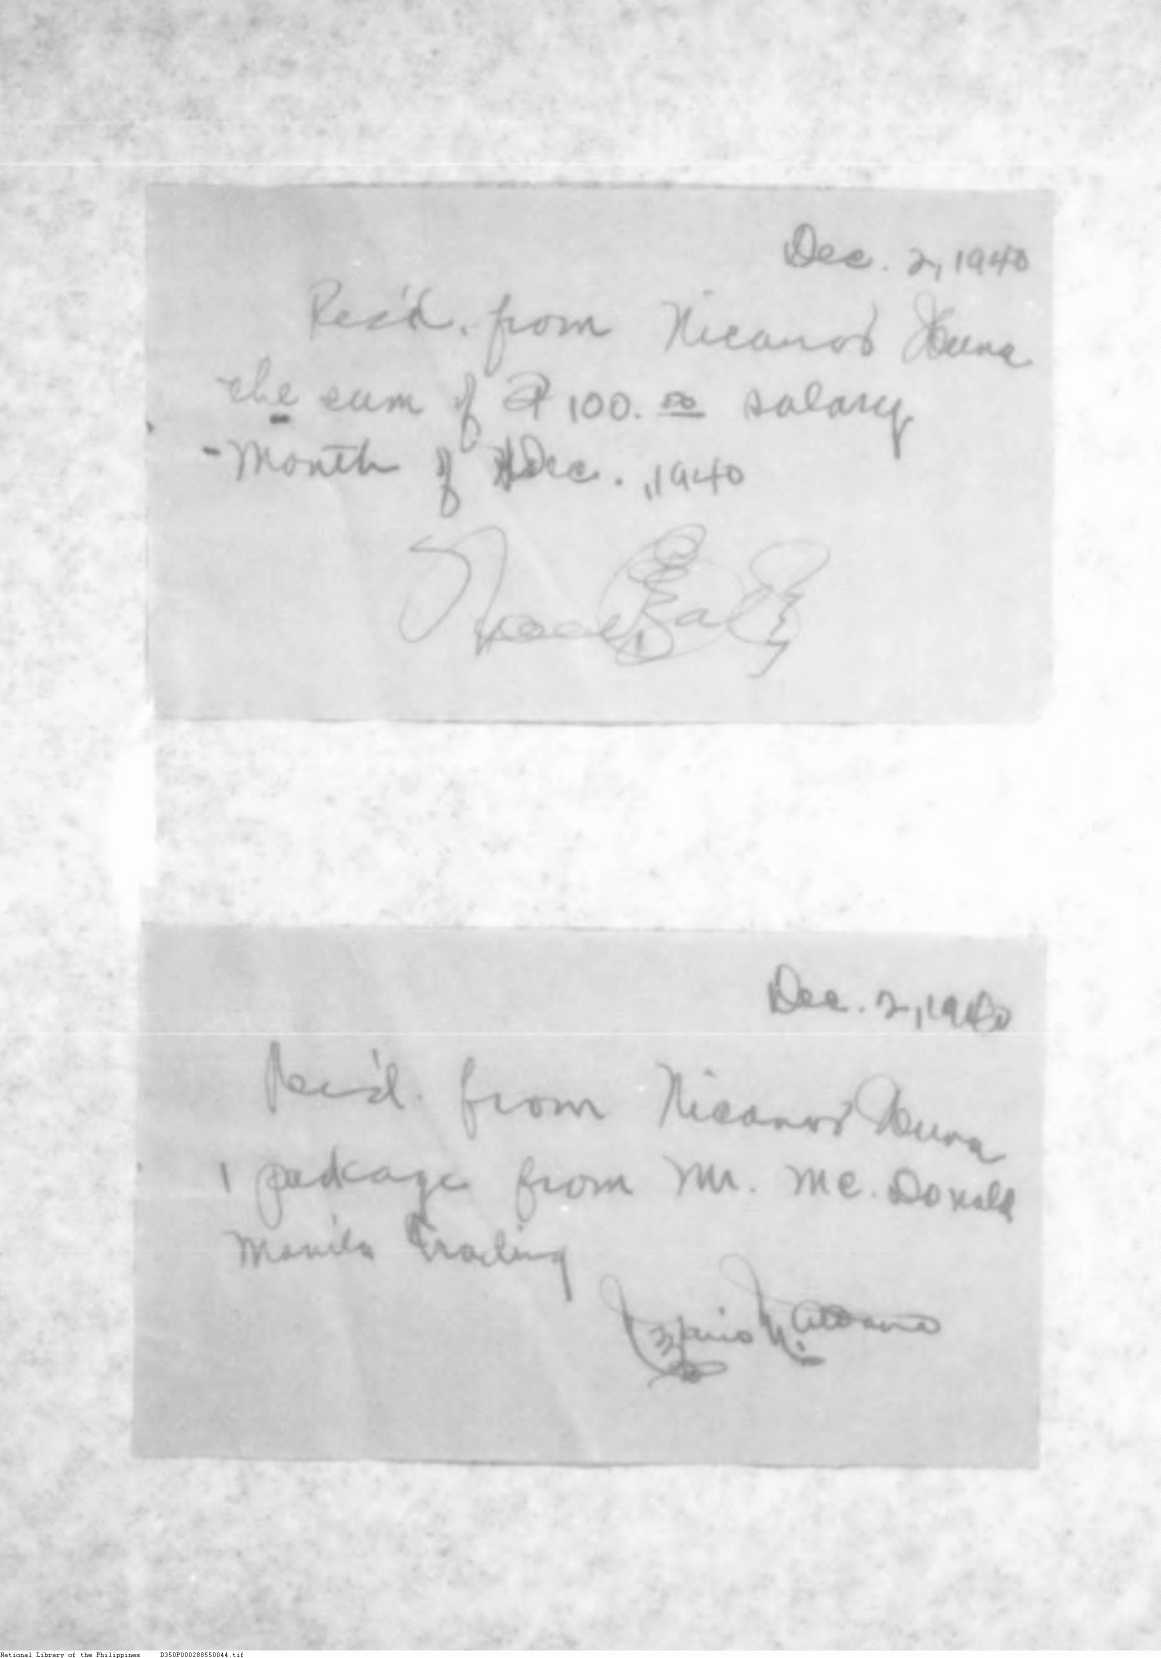 Dec. 2, 1940
Rec'd. from Nicanor
the sum of ₱ 100.00 salary
- Month of Dec., 1940
Dec. 2, 1940
Rec'd. from Nicanor
1 package from Mr. Mc. Donald
Manila Trading
National Library of the Philippines D350P000288550044.tif